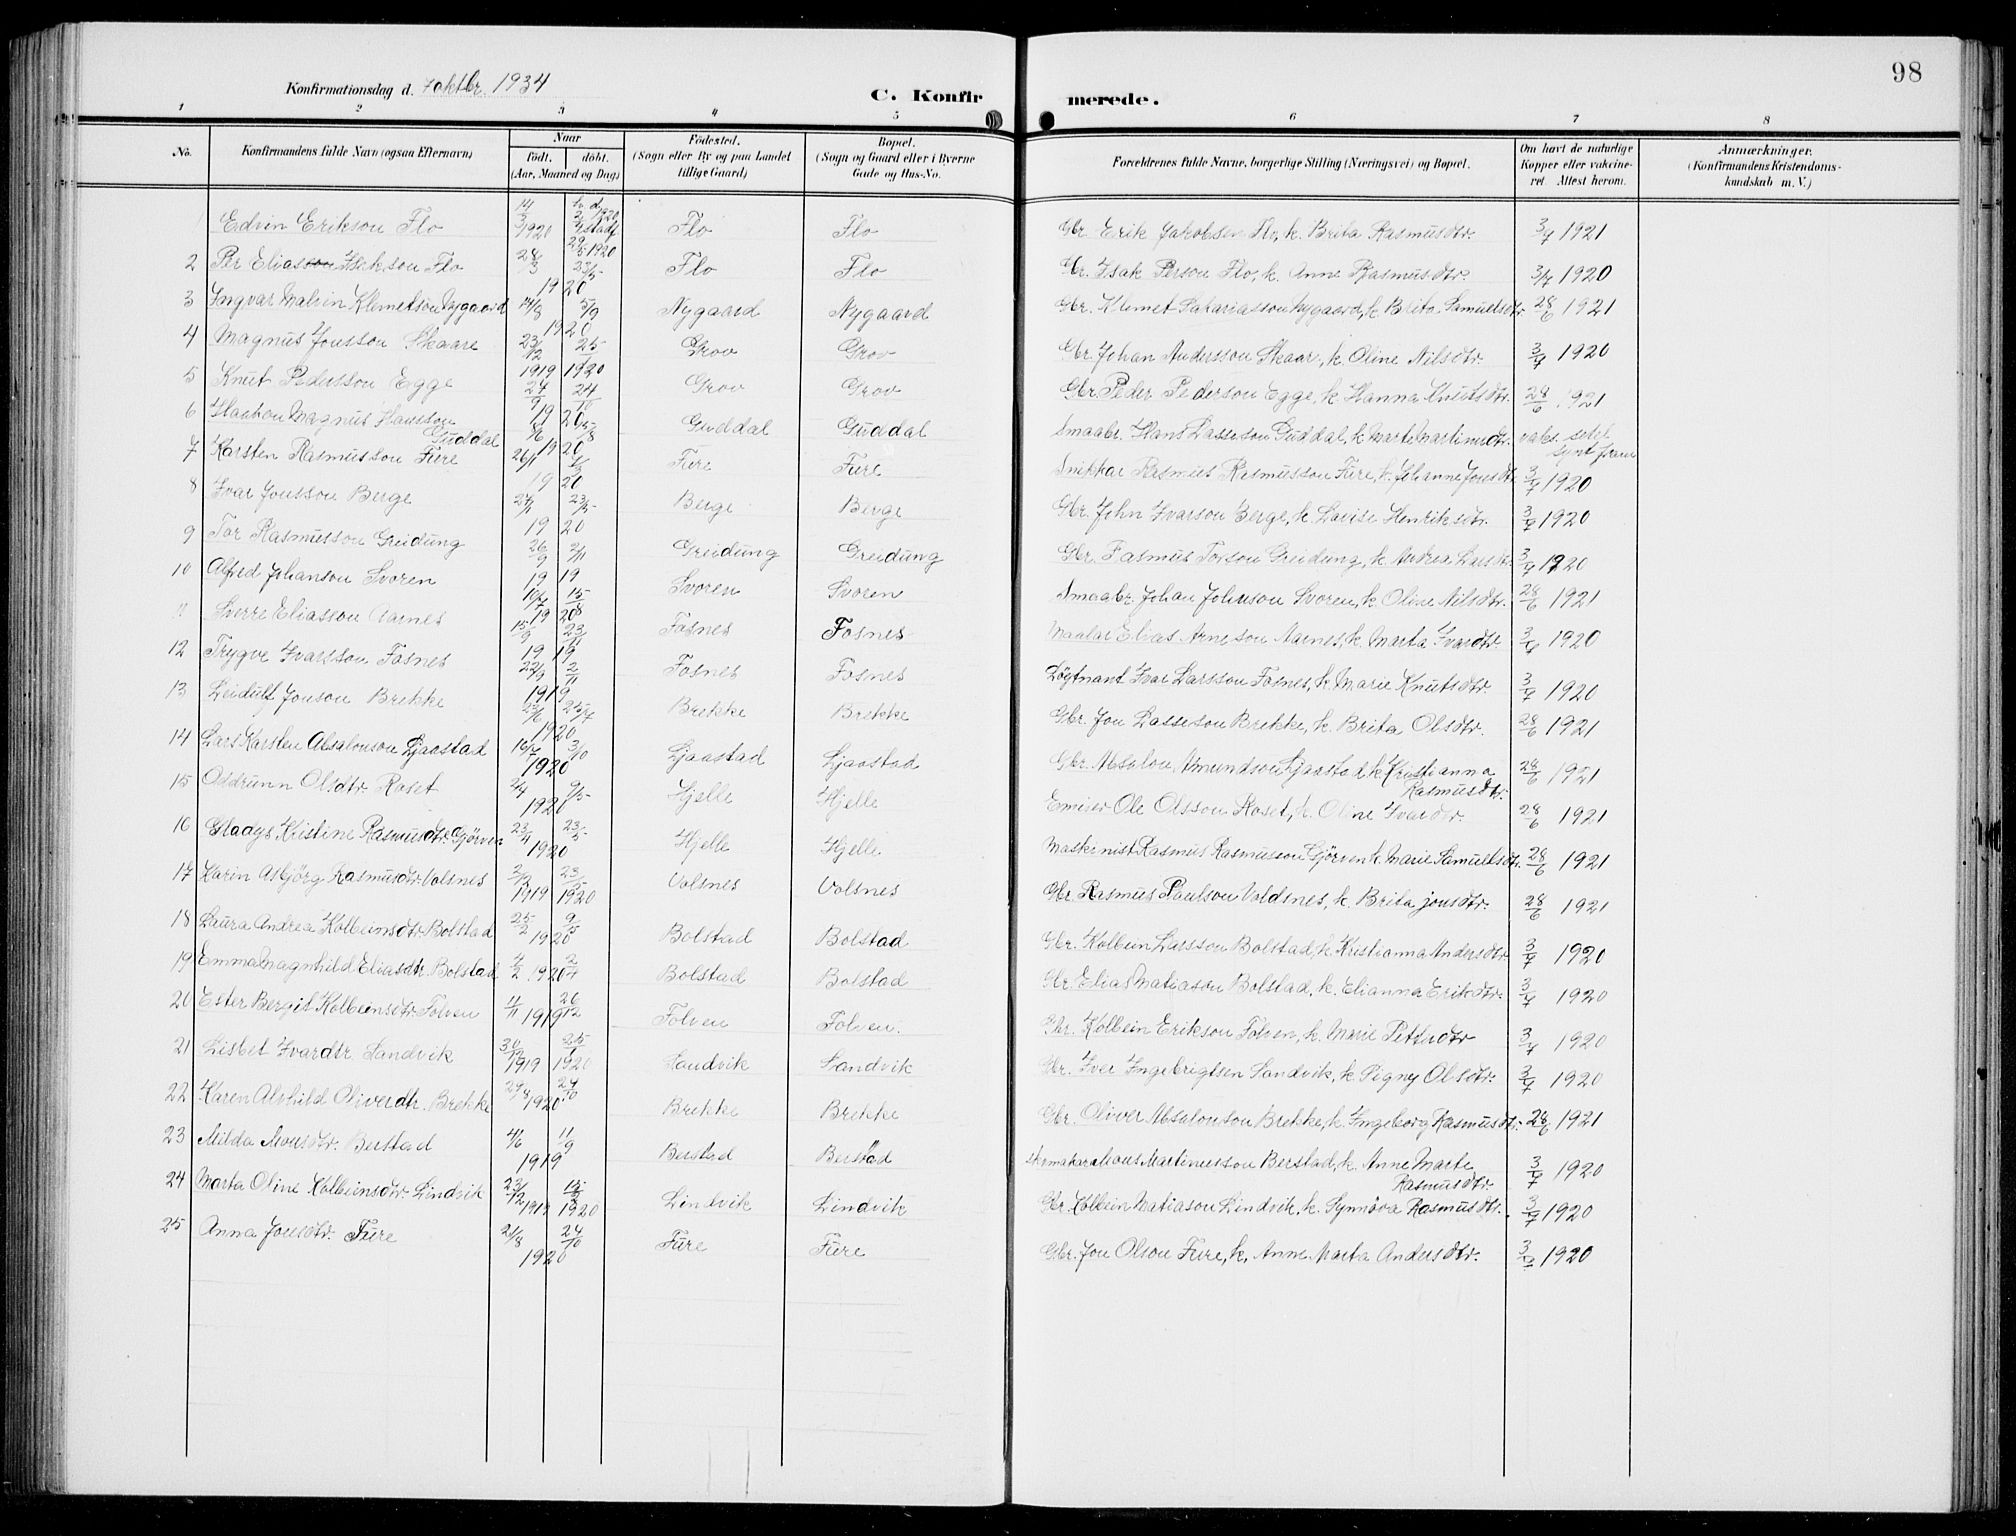 98
Konfirmationsdag d. 7 oktbr. 1934
C. Konfirmerede.
1 2 3 4 5 6 7 8
No. Konfirmandens fulde Navn (ogsaa Efternavn) Naar födt. döbt. (Aar, Maaned og Dag) Födested. (Sogn eller By og paa Landet tillige Gaard) Bopæl. (Sogn og Gaard eller i Byerne Gade og Hus-No. Forældrenes fulde Navne, borgerlige Stilling (Næringsvei) og Bopæl. Om havt de naturlige Kopper eller vakcineret. Attest herom. Anmærkninger. (Konfirmandens Kristendomskundskab m. V.)
1 Edvin Erikson Flo 14/3 1920 Flo Flo Gbr. Erik Jakobsen Flo, k. Brita Rasmusdtr. 3/7 1921
2 Per Eliasson Isakson Flo 28/3 23/5 1920 Flo Flo Gbr. Isak Person Flo, k. Anne Rasmusdtr. 3/7 1920
3 Ingvar Malvin Klemetson Nygaard 14/8 5/9 1920 Nygaard Nygaard Gbr. Klemet Sakariasson Nygaard, k. Brita Samuelsdtr. 28/6 1921
4 Magnus Jonsson Skaare 23/12 1919 25/1 1920 Grov Grov Gbr. Johan Andersson Skaar, k. Oline Nilsdtr. 3/7 1920
5 Knut Pedersson Egge 24/9 24/10 1920 Grov Grov Gbr. Peder Pederson Egge, k. Hanna Knutsdtr. 28/6 1921
6 Haakon Magnus Hansson Guddal 1920 Guddal Guddal Smaabr. Hans Lasseson Guddal, k. Marte Martinusdtr. vaks. setel synt fram
7 Karsten Rasmusson Fure 26/1 1920 Fure Fure Snikkar Rasmus Rasmusson Fure, k. Johanne Jonsdtr. 3/7 1920
8 Ivar Jonsson Berge 24/1 23/5 1920 Berge Berge Gbr. John Ivarson Berge, k. Lovise Henriksdtr. 3/7 1920
9 Tor Rasmusson Greidung 26/9 2/11 1919 Greidung Greidung Gbr. Rasmus Torson Greidung, k. Andrea Larsdtr. 3/7 1920
10 Alfred Johanson Svoren 10/7 15/8 1920 Svoren Svoren Smaabr. Johan Johnson Svoren, k. Oline Nilsdtr. 28/6 1921
11 Sverre Eliasson Aarnes 15/9 23/11 1919 Fosnes Fosnes Maalar Elias Arneson Aarnes, k. Marta Ivardtr. 3/7 1920
12 Trygve Ivarsson Fosnes 22/9 2/11 1919 Fosnes Fosnes Löytnant Ivar Larsson Fosnes, k. Marie Knutsdtr. 3/7 1920
13 Leidulf Jonson Brekke 23/6 25/7 1920 Brekke Brekke Gbr. Jon Lasseson Brekke, k. Brita Olsdtr. 28/6 1921
14 Lars Karsten Absalonson Ljaastad 16/7 3/10 1920 Ljaastad Ljaastad Gbr. Absalon Amundson Ljaastad k. Kristianna Rasmusdtr. 28/6 1921
15 Oddrunn Olsdtr. Roset 2/4 9/5 1920 Hjelle Hjelle Emiser Ole Olsson Roset, k. Oline Ivardtr. 28/6 1921
16 Gladys Kristine Rasmusdtr. Gjörven 23/4 23/5 1920 Hjelle Hjelle Maskinist Rasmus Rasmusson Gjörven k. Marie Samuelsdtr. 28/6 1921
17 Karin Asbjörg Rasmusdtr. Volsnes 3/12 1919 23/5 1920 Volsnes Volsnes Gbr. Rasmus Paulson Voldsnes, k. Brita Jonsdtr. 28/6 1921
18 Laura Andrea Kolbeinsdtr. Bolstad 25/2 9/5 1920 Bolstad Bolstad Gbr. Kolbein Larsson Bolstad, k. Kristianna Andersdtr. 3/7 1920
19 Emma Magnhild Eliasdtr. Bolstad 4/2 2/4 1920 Bolstad Bolstad Gbr. Elias Matiason Bolstad, k. Elianna Eriksdtr. 3/7 1920
20 Ester Bergit Kolbeinsdtr. Folven 4/11 26/12 1919 Folven Folven. Gbr. Kolbein Erikson Folven, k. Marie Pettersdtr 3/7 1920
21 Lisbet Ivardtr. Sandvik 30/12 1919 25/1 1920 Sandvik Sandvik Gbr. Iver Ingebrigtsen Sandvik, k. Signy Olsdtr. 3/7 1920
22 Karen Alvhild Oliverdtr. Brekke 29/8 24/10 1920 Brekke Brekke Gbr. Oliver Absalonson Brekke, k. Ingeborg Rasmusdtr. 28/6 1921
23 Milda Monsdtr. Berstad 4/6 11/9 1919 Berstad Berstad Skomakar Mons Martinusson Berstad, k. Anne Marte Rasmusdtr. 3/7 1920
24 Marta Oline Kolbeinsdtr. Lindvik 23/12 1919 15/2 1920 Lindvik Lindvik Gbr. Kolbein Matiason Lindvik, k. Synnöva Rasmusdtr. 3/7 1920
25 Anna Jonsdtr. Fure 21/8 24/10 1920 Fure Fure Gbr. Jon Olson Fure, k. Anne Marta Andersdtr. 3/7 1920